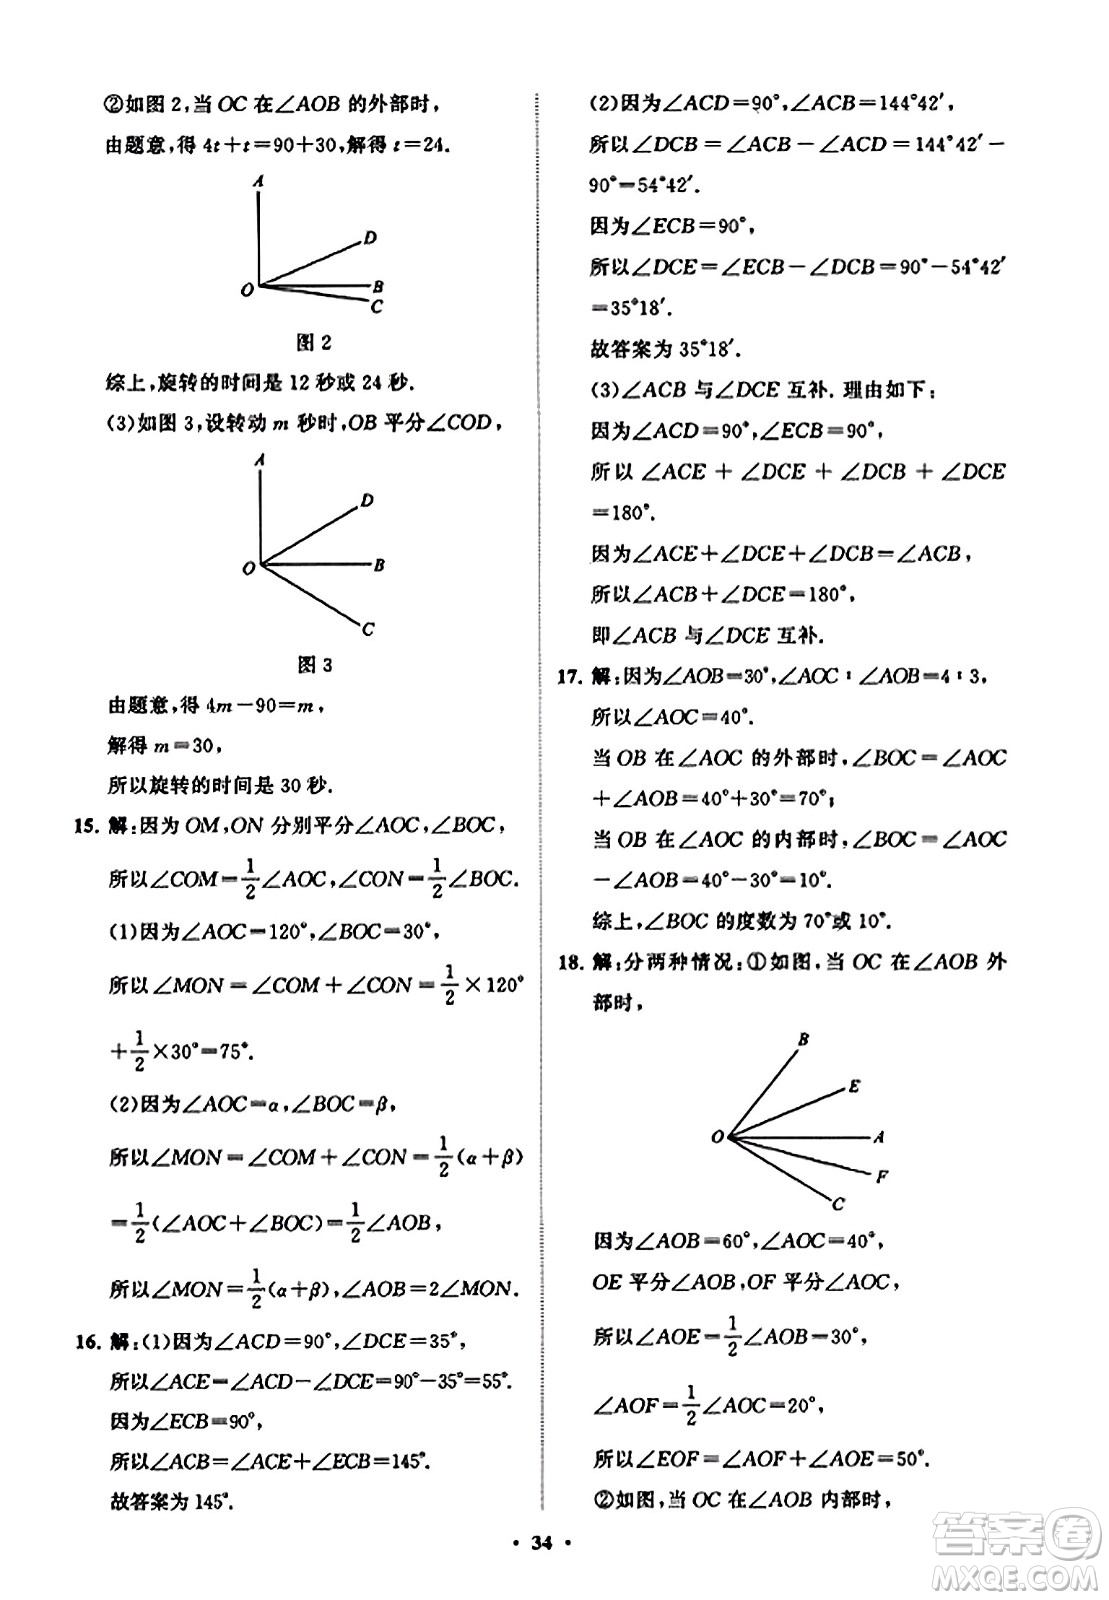 ②如图 2,当 OC 在∠AOB 的外部时,
由题意,得 4t+t=90+30,解得 t=24.
A
D
O
B
C
图 2
综上,旋转的时间是 12 秒或 24 秒.
(3)如图 3,设转动 m 秒时,OB 平分∠COD,
A
D
O
B
C
图 3
由题意,得 4m-90=m,
解得 m=30,
所以旋转的时间是 30 秒.
15. 解:因为 OM,ON 分别平分∠AOC,∠BOC,
所以∠COM=1/2∠AOC,∠CON=1/2∠BOC.
(1)因为∠AOC=120°,∠BOC=30°,
所以∠MON=∠COM+∠CON=1/2×120°
+1/2×30°=75°.
(2)因为∠AOC=α,∠BOC=β,
所以∠MON=∠COM+∠CON=1/2(α+β)
=1/2(∠AOC+∠BOC)=1/2∠AOB,
所以∠MON=1/2(α+β),∠AOB=2∠MON.
16. 解:(1)因为∠ACD=90°,∠DCE=35°,
所以∠ACE=∠ACD-∠DCE=90°-35°=55°.
因为∠ECB=90°,
所以∠ACB=∠ACE+∠ECB=145°.
故答案为 145°.
(2)因为∠ACD=90°,∠ACB=144°42′,
所以∠DCB=∠ACB-∠ACD=144°42′-
90°=54°42′.
因为∠ECB=90°,
所以∠DCE=∠ECB-∠DCB=90°-54°42′
=35°18′.
故答案为 35°18′.
(3)∠ACB 与∠DCE 互补.理由如下:
因为∠ACD=90°,∠ECB=90°,
所以∠ACE+∠DCE+∠DCB+∠DCE
=180°.
因为∠ACE+∠DCE+∠DCB=∠ACB,
所以∠ACB+∠DCE=180°,
即∠ACB 与∠DCE 互补.
17. 解:因为∠AOB=30°,∠AOC∶∠AOB=4∶3,
所以∠AOC=40°.
当 OB 在∠AOC 的外部时,∠BOC=∠AOC
+∠AOB=40°+30°=70°;
当 OB 在∠AOC 的内部时,∠BOC=∠AOC
-∠AOB=40°-30°=10°.
综上,∠BOC 的度数为 70°或 10°.
18. 解:分两种情况:①如图,当 OC 在∠AOB 外
部时,
B
E
O
A
F
C
因为∠AOB=60°,∠AOC=40°,
OE 平分∠AOB,OF 平分∠AOC,
所以∠AOE=1/2∠AOB=30°,
∠AOF=1/2∠AOC=20°,
所以∠EOF=∠AOF+∠AOE=50°.
②如图,当 OC 在∠AOB 内部时,
• 34 •
答案卷
MXQE.COM